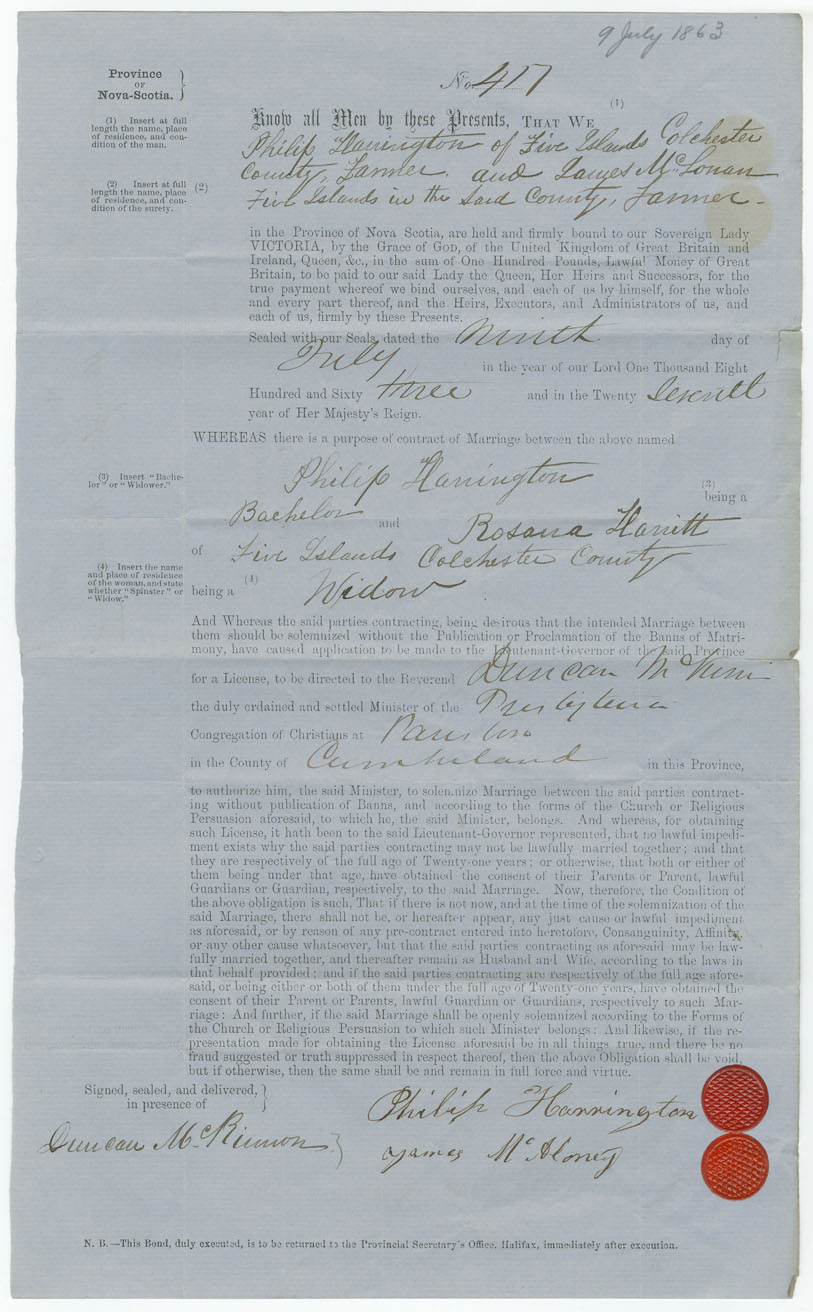 9 July 1863
Province
OF
Nova-Scotia.
No. 417
(1)
(1) Insert at full
length the name, place
of residence, and con-
dition of the man.
Know all Men by these Presents, THAT WE
Philip Harrington of Five Islands Colchester
County, Farmer. and James Mc
(2) Insert at full
length the name, place
of residence, and con-
dition of the surety.
(2)
Five Islands in the said County, Farmer -
in the Province of Nova Scotia, are held and firmly bound to our Sovereign Lady
VICTORIA, by the Grace of GOD, of the United Kingdom of Great Britain and
Ireland, Queen, &c., in the sum of One Hundred Pounds, Lawful Money of Great
Britain, to be paid to our said Lady the Queen, Her Heirs and Successors, for the
true payment whereof we bind ourselves, and each of us by himself, for the whole
and every part thereof, and the Heirs, Executors, and Administrators of us, and
each of us, firmly by these Presents.
Sealed with our Seals, dated the Ninth day of
July in the year of our Lord One Thousand Eight
Hundred and Sixty three and in the Twenty
year of Her Majesty's Reign.
WHEREAS there is a purpose of contract of Marriage between the above named
(3) Insert "Bache-
lor" or "Widower."
Philip Harrington (3)
being a
Bachelor and Rosana Harritt
of Five Islands Colchester County
(4) Insert the name
and place of residence
of the woman, and state
whether "Spinster" or
"Widow."
(4)
being a Widow
And Whereas the said parties contracting, being desirous that the intended Marriage between
them should be solemnized without the Publication or Proclamation of the Banns of Matri-
mony, have caused application to be made to the Lieutenant-Governor of the said Province
for a License, to be directed to the Reverend Duncan McKinn
the duly ordained and settled Minister of the Presbyterian
Congregation of Christians at Parrsboro
in the County of Cumberland in this Province,
to authorize him, the said Minister, to solemnize Marriage between the said parties contract-
ing without publication of Banns, and according to the forms of the Church or Religious
Persuasion aforesaid, to which he, the said Minister, belongs. And whereas, for obtaining
such License, it hath been to the said Lieutenant-Governor represented, that no lawful impedi-
ment exists why the said parties contracting may not be lawfully married together; and that
they are respectively of the full age of Twenty-one years; or otherwise, that both or either of
them being under that age, have obtained the consent of their Parents or Parent, lawful
Guardians or Guardian, respectively, to the said Marriage. Now, therefore, the Condition of
the above obligation is such, That if there is not now, and at the time of the solemnization of the
said Marriage, there shall not be, or hereafter appear, any just cause or lawful impediment
as aforesaid, or by reason of any pre-contract entered into heretofore, Consanguinity, Affinity,
or any other cause whatsoever, but that the said parties contracting as aforesaid may be law-
fully married together, and thereafter remain as Husband and Wife, according to the laws in
that behalf provided; and if the said parties contracting are respectively of the full age afore-
said, or being either or both of them under the full age of Twenty-one years, have obtained the
consent of their Parent or Parents, lawful Guardian or Guardians, respectively to such Mar-
riage: And further, if the said Marriage shall be openly solemnized according to the Forms of
the Church or Religious Persuasion to which such Minister belongs: And likewise, if the re-
presentation made for obtaining the License aforesaid be in all things true, and there be no
fraud suggested or truth suppressed in respect thereof, then the above Obligation shall be void,
but if otherwise, then the same shall be and remain in full force and virtue.
Signed, sealed, and delivered,
in presence of
Philip Harrington
Duncan McKinnon
James McAloney
N. B.—This Bond, duly executed, is to be returned to the Provincial Secretary's Office, Halifax, immediately after execution.